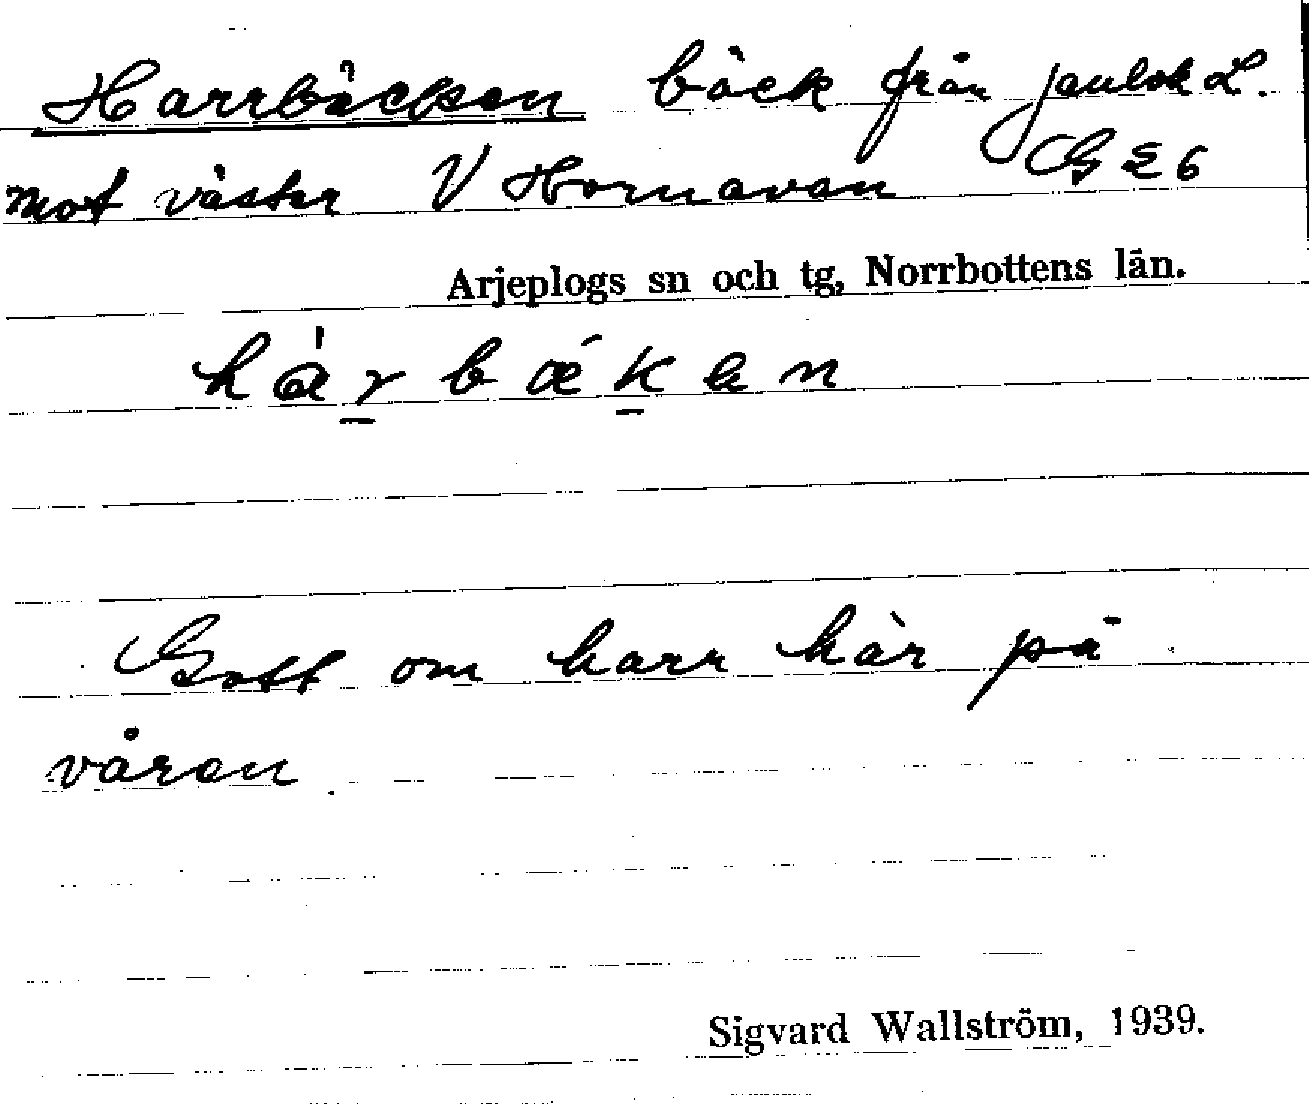 Harrbäcken bäck från Jaulok L.
mot väster V Hornavan G E 6
Arjeplogs sn och tg, Norrbottens län.
hárbǽken
Gott om harr här på
våren.
Sigvard Wallström, 1939.